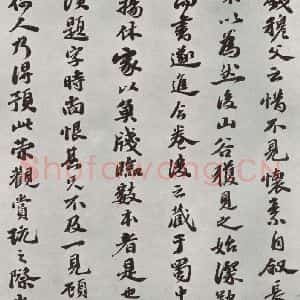 錢穆父云惜不見懷素自叙長
以為然後山谷獲見之始
而書遂進今卷後云藏于蜀中
揚休家以黃牋臨數本者是也
題字時尚恨其兄不及一見頃
何人乃得預此榮觀賞玩之際